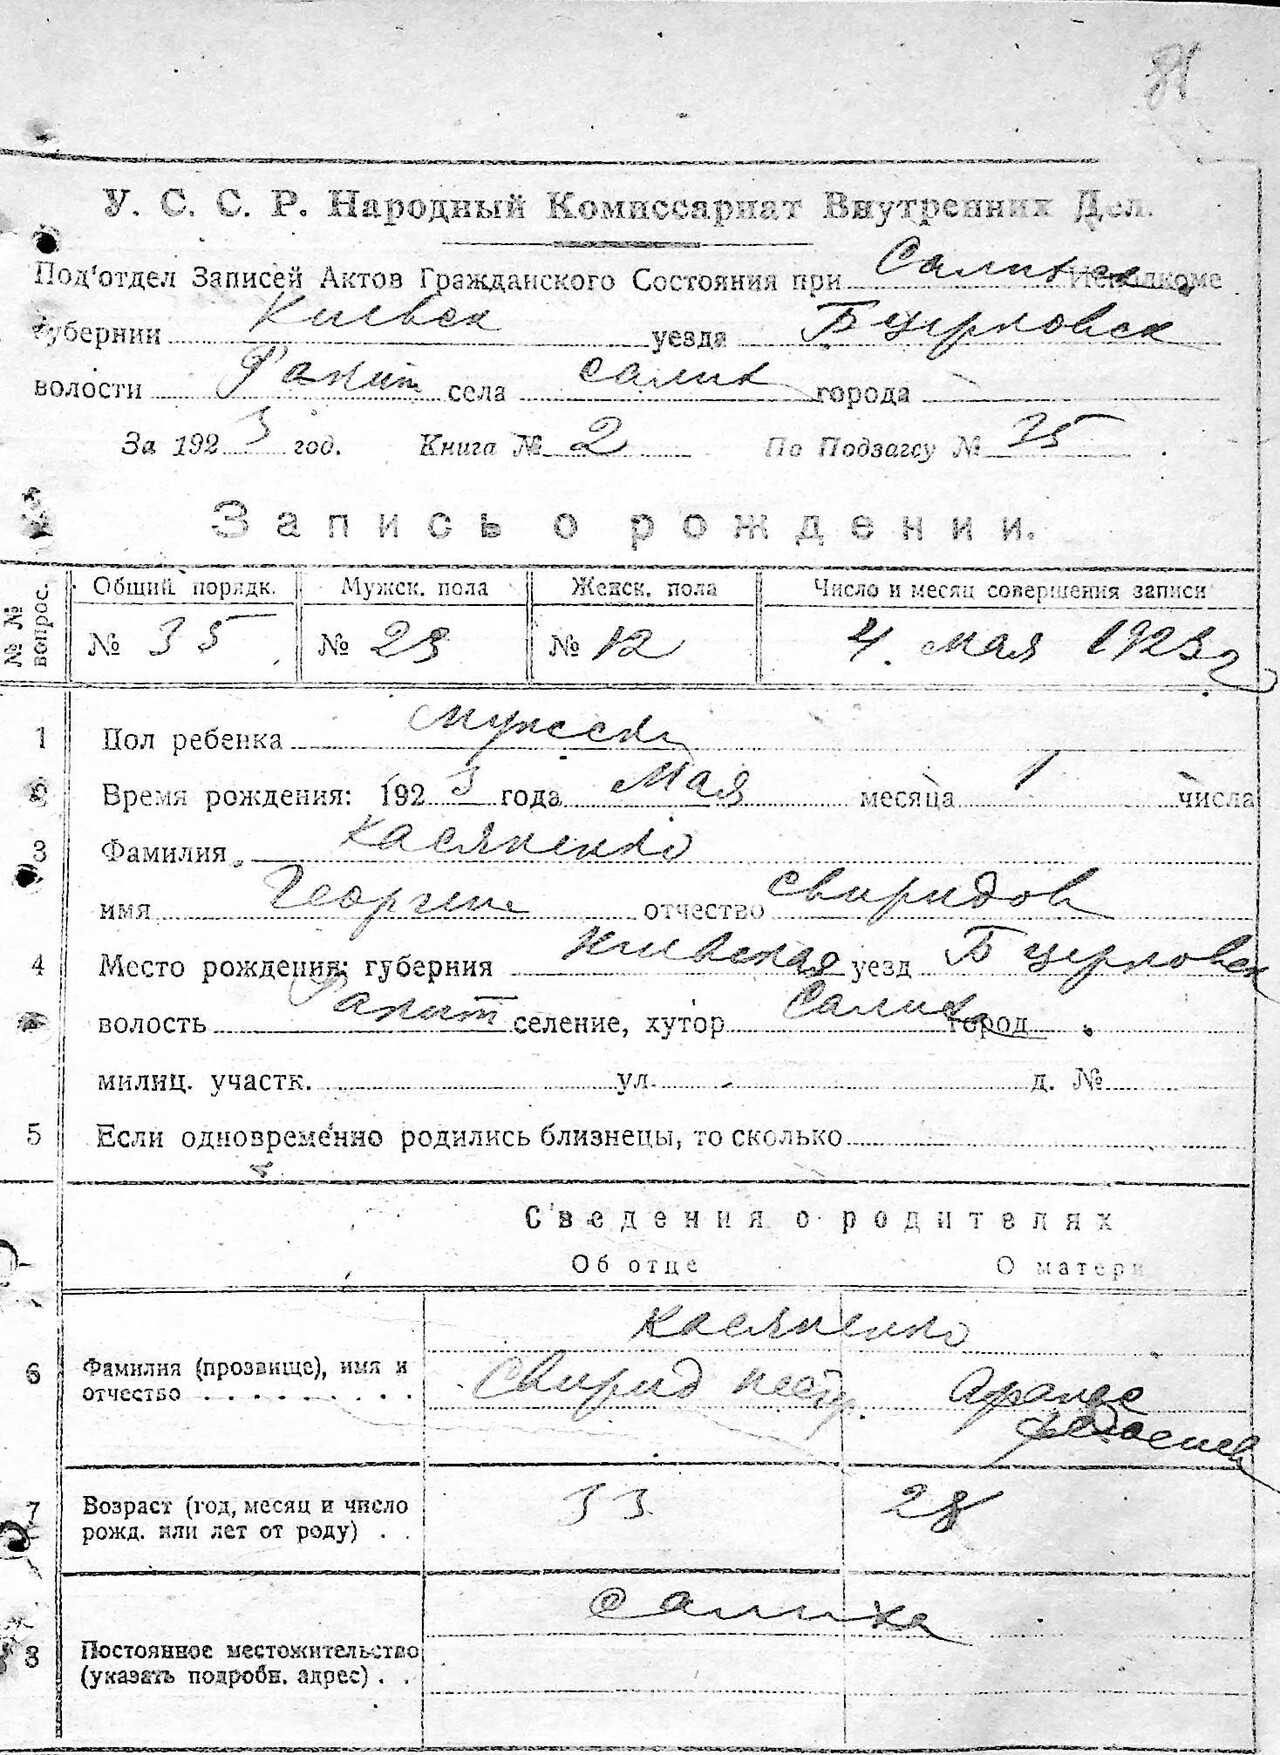 81
У. С. С. Р. Народный Комиссариат Внутренних Дел.
Под'отдел Записей Актов Гражданского Состояния при Исполкоме
губернии Киевск уезда Б церковск
волости Ракит села Салиха города
За 1923 год. Книга № 2 По Подзагсу № 35
Запись о рождении.
№№ вопрос. Общий порядк. Мужск. пола Женск. пола Число и месяц совершения записи
№ 35 № 23 № 12 4. мая 1923 г
1 Пол ребенка мужски
2 Время рождения: 1923 года Мая месяца 1 числа
3 Фамилия Касяненко
имя Георгие отчество Свиридов
4 Место рождения: губерния Киевская уезд Б церковск
волость Ракит селение, хутор Салиха город
милиц. участк. ул. д. №
5 Если одновременно родились близнецы, то сколько
Сведения о родителях
Об отце О матери
Касяненко
6 Фамилия (прозвище), имя и Свирид Нест.
отчество . . . . . . . . .
7 Возраст (год, месяц и число 33 28
рожд. или лет от роду) . .
Салиха
8 Постоянное местожительство
(указать подробн. адрес) . .